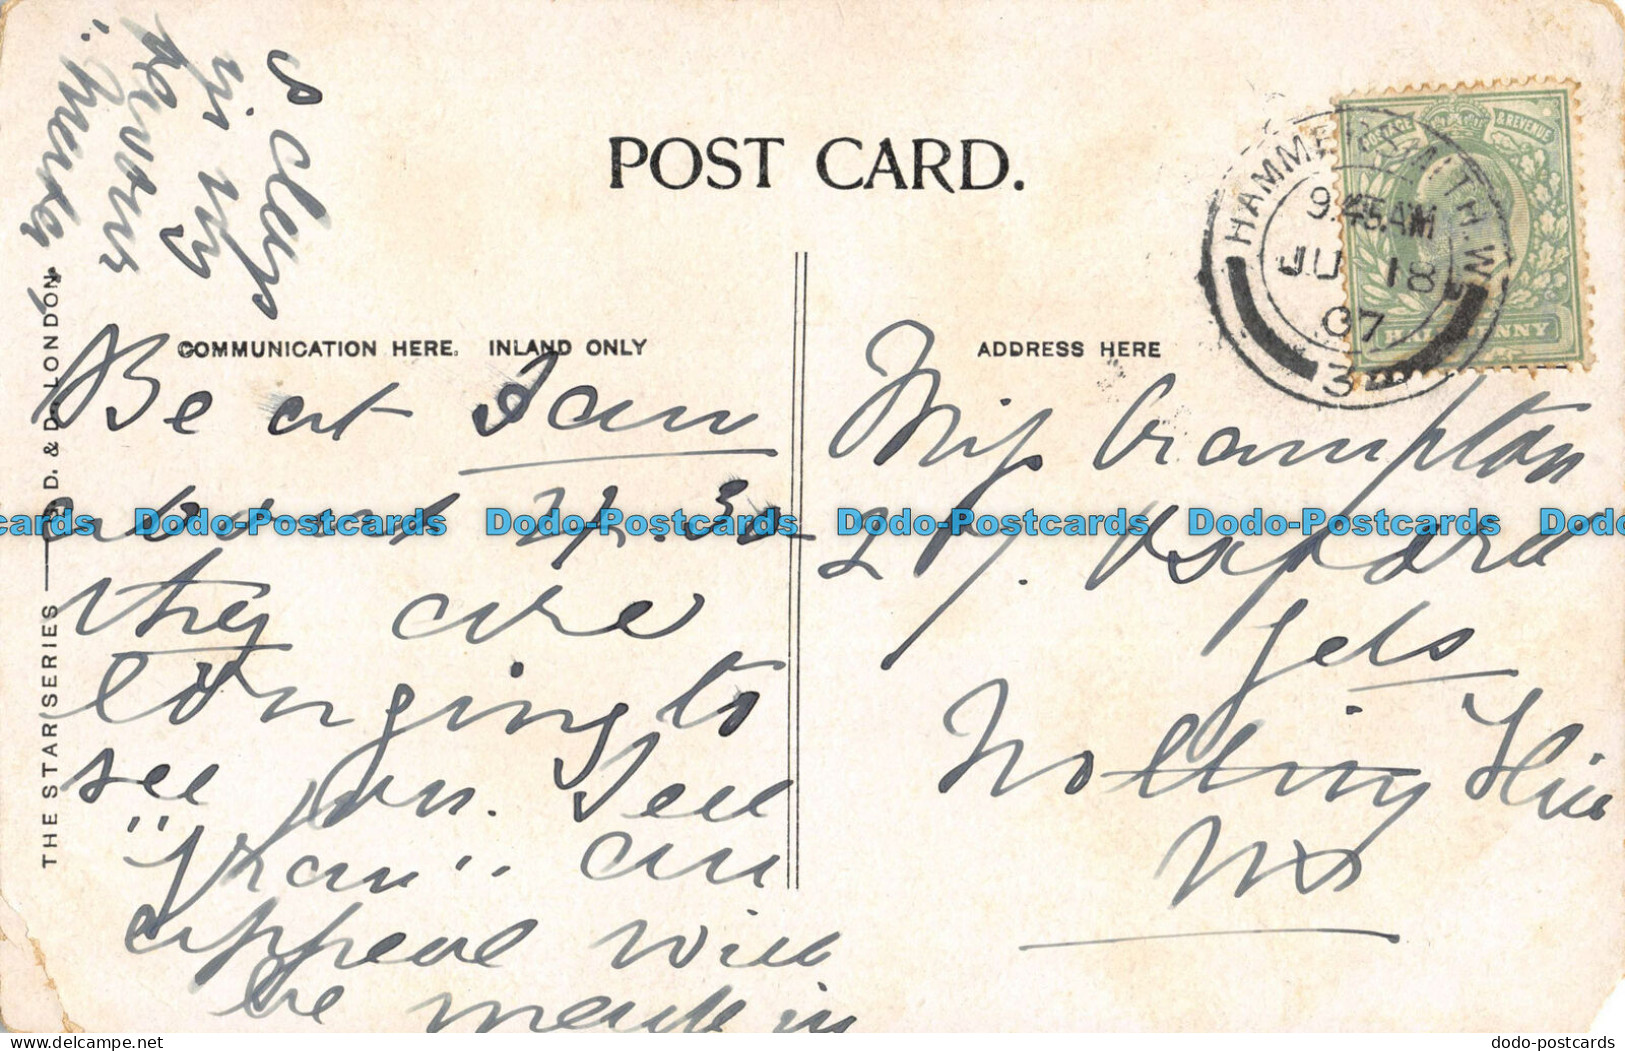 POST CARD.
COMMUNICATION HERE. INLAND ONLY
ADDRESS HERE
HAMMERSMITH. W.
9.45 AM
JU 18
07
3
POSTAGE & REVENUE
HALFPENNY
THE STAR SERIES — G. D. & D. LONDON.
Be at
about 4.30
they are
longing to
see you. Tell
"Gran" an
appeal will
be made in
Miss Crampton
27.
Gds
Notting Hill
W
Dodo-Postcards Dodo-Postcards Dodo-Postcards Dodo-Postcards
delcampe.net
dodo-postcards